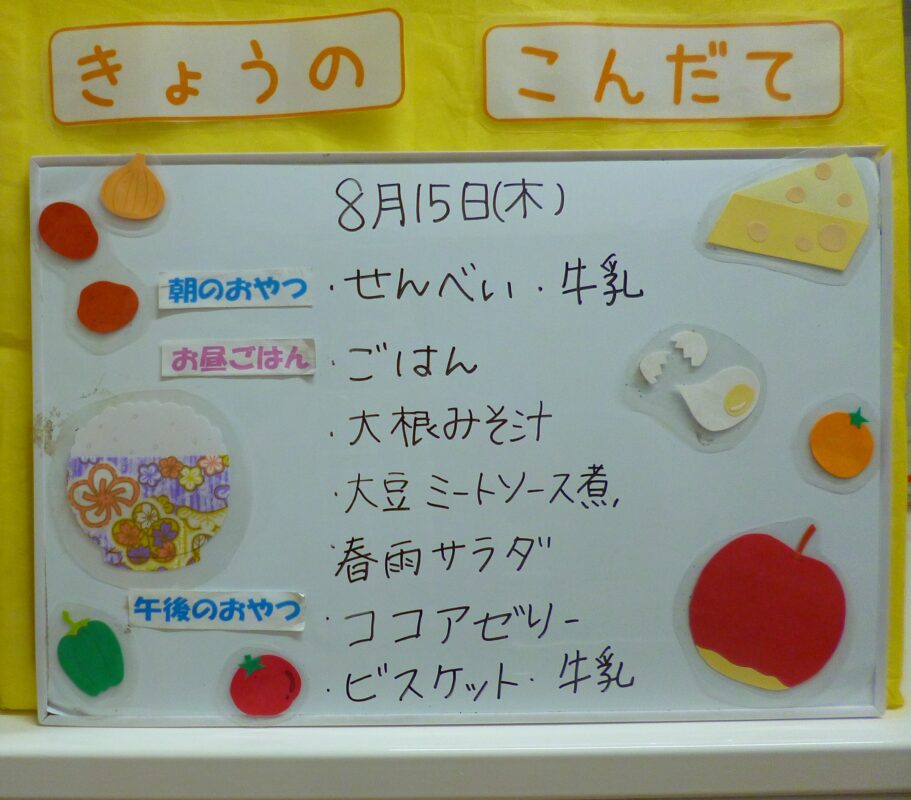 きょうの こんだて
8月15日(木)
朝のおやつ ・せんべい・牛乳
お昼ごはん ・ごはん
・大根みそ汁
・大豆ミートソース煮
・春雨サラダ
午後のおやつ ・ココアゼリー
・ビスケット・牛乳